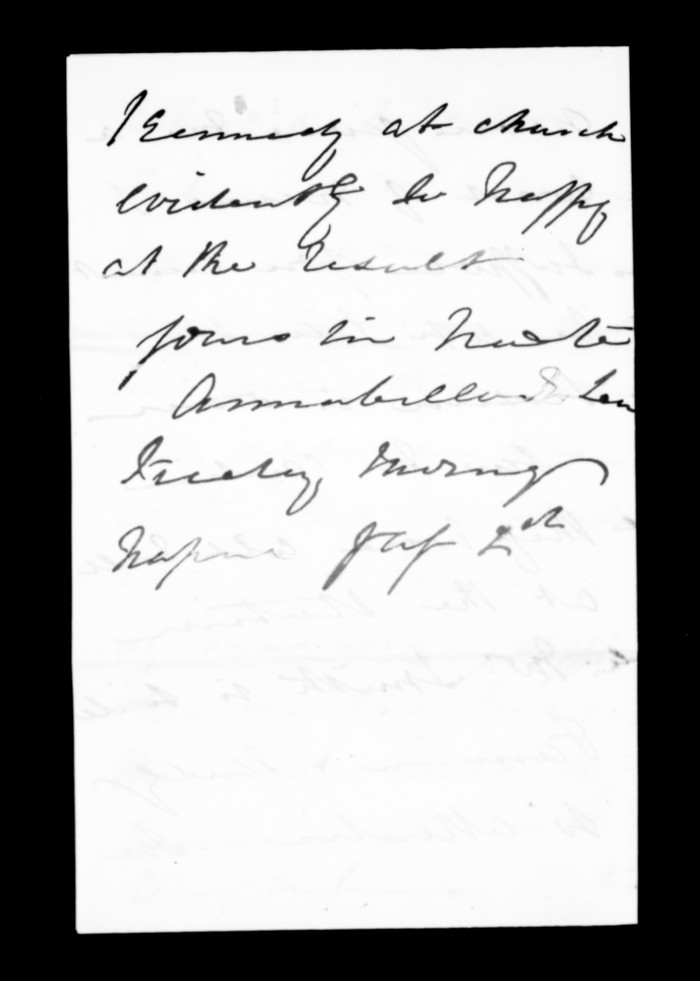 Kennedy at church
evidently so happy
at the result
yours in haste
Annabella D. Lean
Friday morning
Napier 2nd